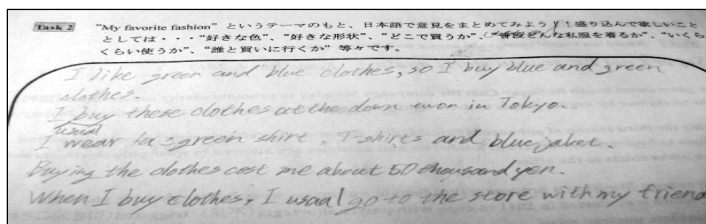 Task 2 "My favorite fashion" というテーマのもと、日本語で意見をまとめてみよう!盛り込んで欲しいこと
としては・・・"好きな色"、"好きな形状"、"どこで買うか"、"普段どんな私服を着るか"、"いくら
くらい使うか"、"誰と買いに行くか" 等々です。
I like green and blue clothes, so I buy blue and green
clothes.
I buy these clothes at the down in Tokyo.
usual
I wear green shirt, T-shirts and blue jaket.
Buying the clothes cost me about 50 thousand yen.
When I buy clothes, I usual go to the store with my friend